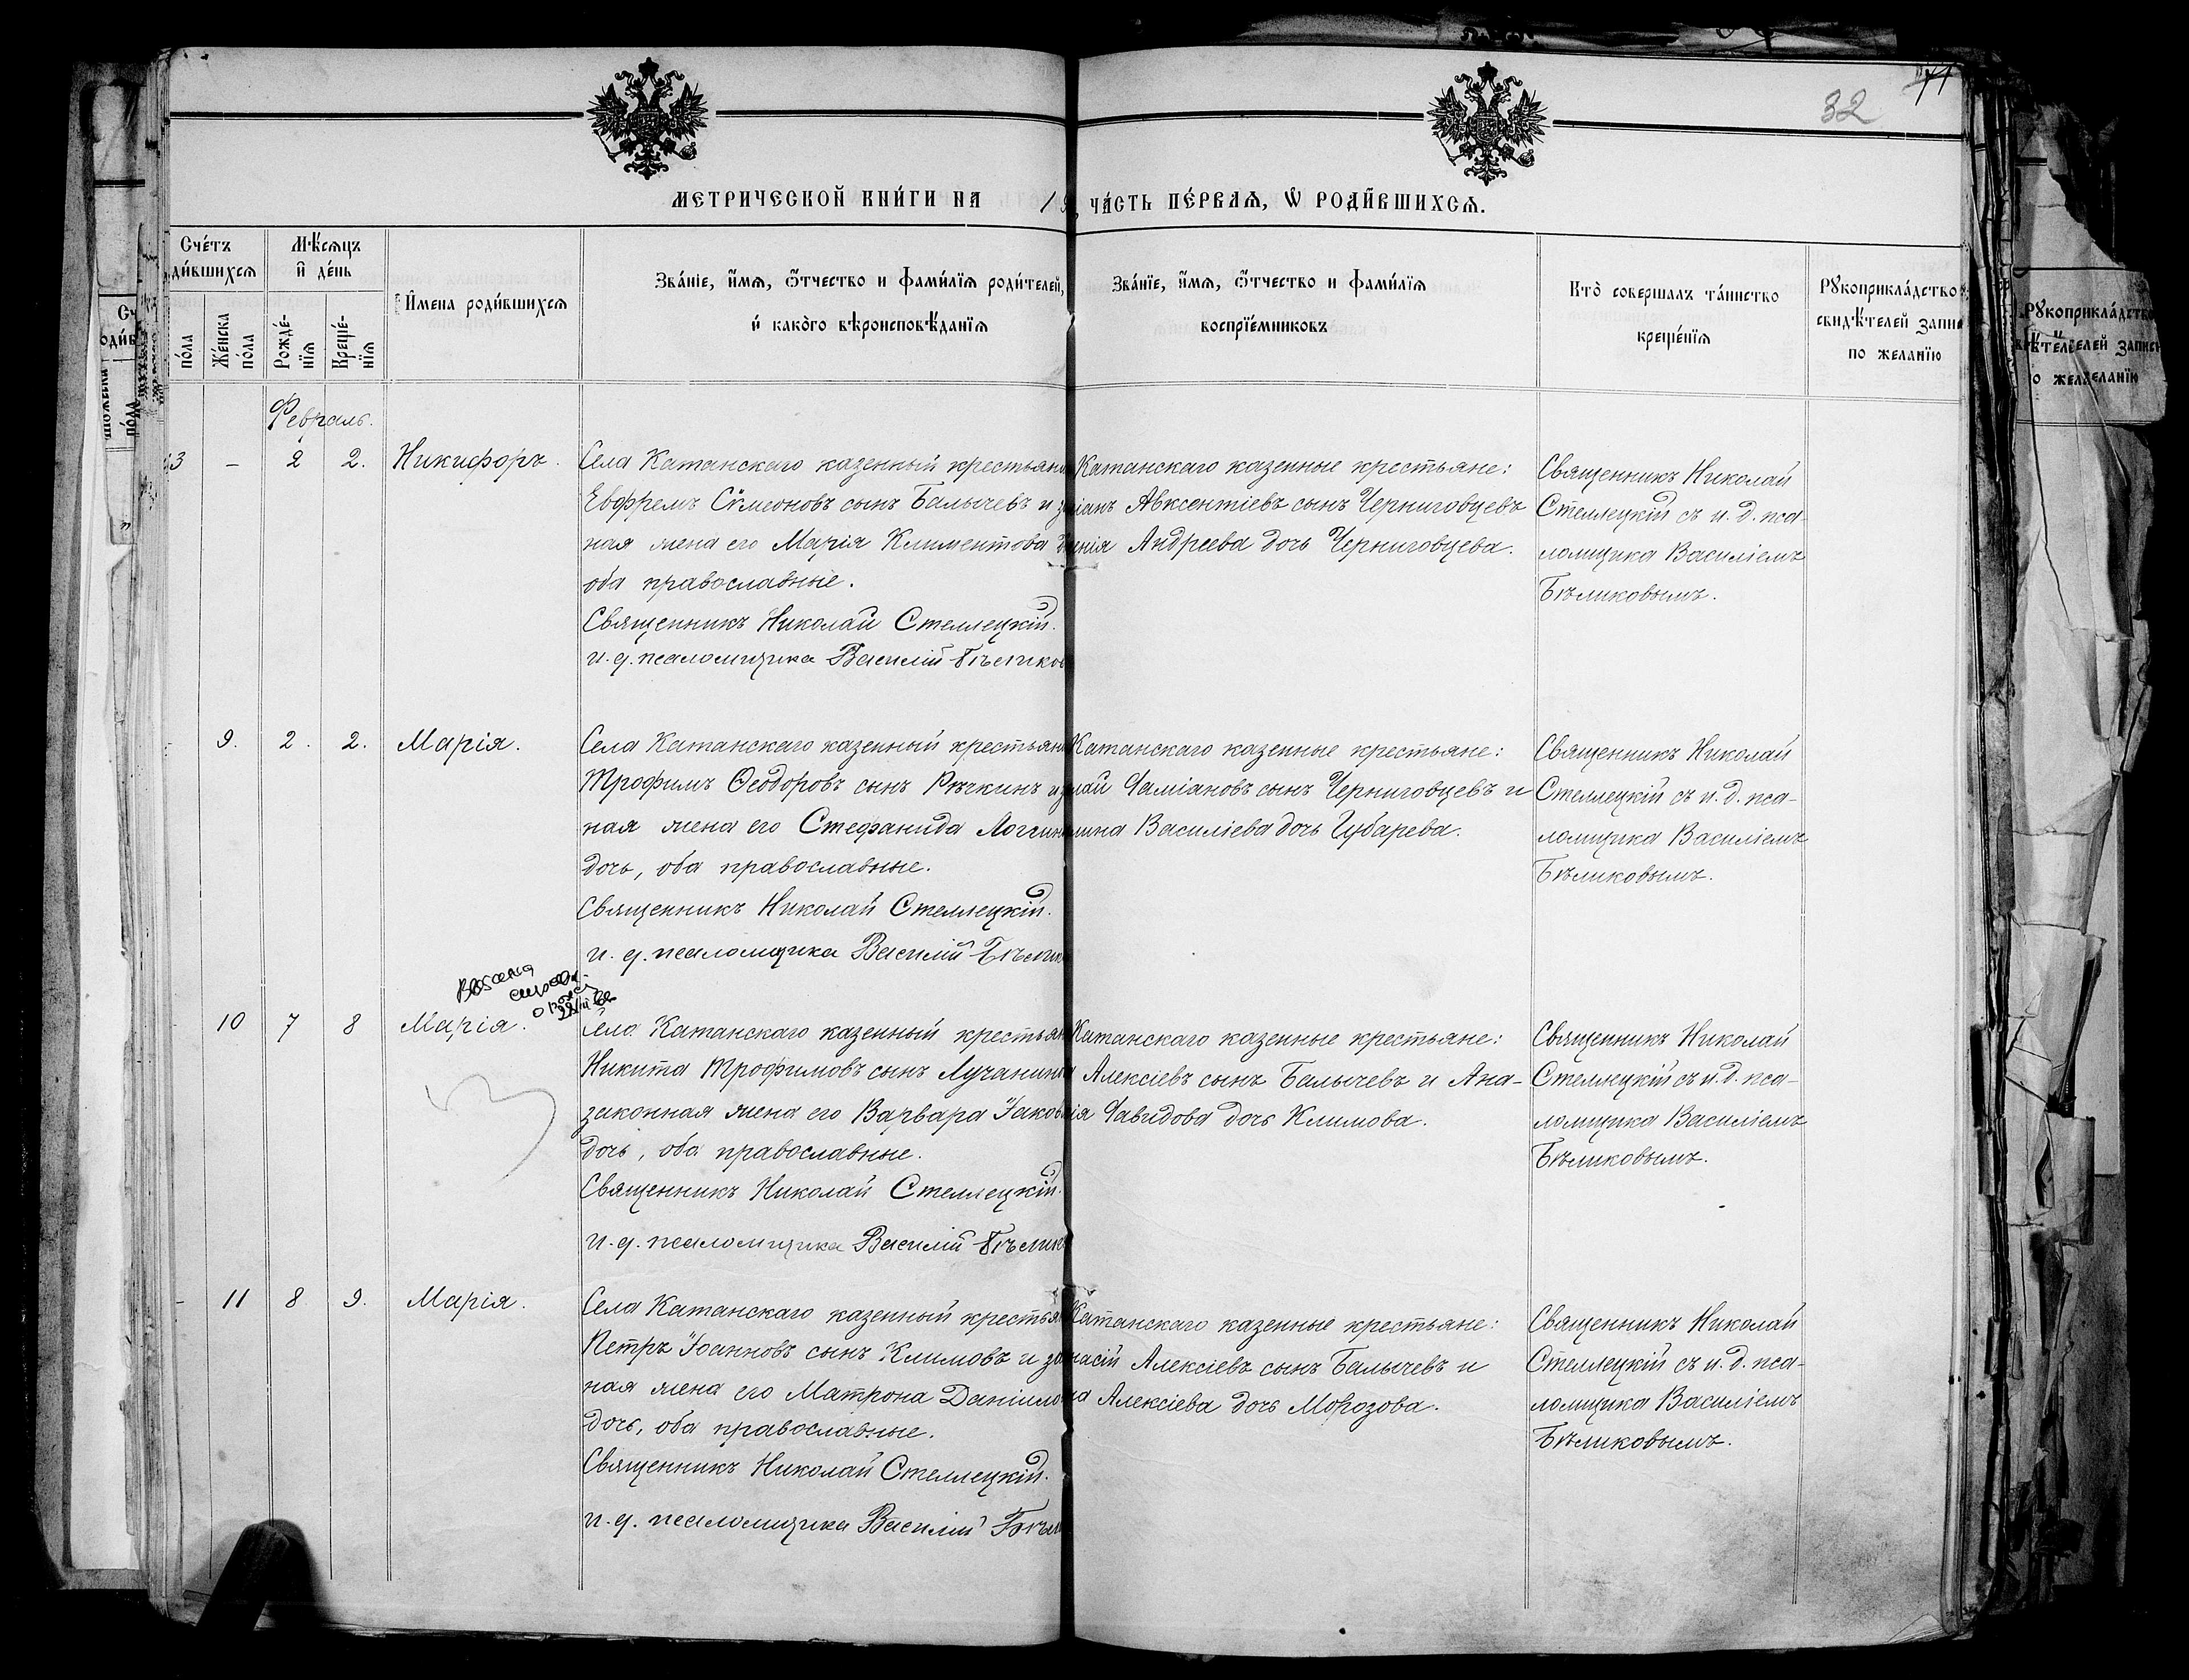 32
71
МЕТРИЧЕСКОЙ КНИ́ГИ НА 19
ЧА́СТЬ ПЕ́РВАѦ, Ѡ҆ РОДИ́ВШИХСѦ.
Сче́тъ
ди́вшихсѧ
по́ла
Же́нска
по́ла
Мѣ́сѧцъ
и҆ де́нь
Рожде́-
нїѧ
Креще́-
нїѧ
И҆мена роди́вшихсѧ
Зва́нїе, и҆́мѧ, ѻ҆́тчество и фами́лїѧ роди́телей,
и҆ како́го вѣроисповѣ́данїѧ
Зва́нїе, и҆́мѧ, ѻ҆́тчество и фами́лїѧ
воспрїе́мниковъ
Кто̀ совершалъ та́инство
креще́нїѧ
Рꙋкоприкла́дство
свидѣ́телей запи
по желанїю
Февраль.
3 – 2 2. Никифоръ.
Села Катанскаго казенный крестьяни
Евфремъ Сѵмеоновъ сынъ Балычевъ и з
ная жена его Марія Климентова д
оба православные.
Священникъ Николай Стеллецкій.
и. д. псаломщика Василій Бѣликов
Катанскаго казенные крестьяне:
міанъ Авксентіевъ сынъ Черниговцевъ
енія Андреева дочь Черниговцева.
Священникъ Николай
Стеллецкій съ и. д. пса-
ломщика Василіемъ
Бѣликовымъ.
9. 2. 2. Марія.
Села Катанскаго казенный крестьян
Трофимъ Ѳеодоровъ сынъ Рѣчкинъ и з
ная жена его Стефанида Логгин
дочь, оба православные.
Священникъ Николай Стеллецкій.
и. д. псаломщика Василій Бѣлик
Катанскаго казенные крестьяне:
лай Даміановъ сынъ Черниговцевъ и
Василіева дочь Губарева.
Священникъ Николай
Стеллецкій съ и. д. пса-
ломщика Василіемъ
Бѣликовымъ.
10 7 8 Марія.
Села Катанскаго казенный крестьян
Никита Трофимовъ сынъ Лучанин
законная жена его Варвара Іаков
дочь, оба православные.
Священникъ Николай Стеллецкій.
и. д. псаломщика Василій Бѣлик
Катанскаго казенные крестьяне:
Алексіевъ сынъ Балычевъ и Ана-
ія Давидова дочь Климова.
Священникъ Николай
Стеллецкій съ и. д. пса-
ломщика Василіемъ
Бѣликовымъ.
– 11 8 9. Марія.
Села Катанскаго казенный крестья
Петръ Іоанновъ сынъ Климовъ и за
ная жена его Матрона Даніило
дочь, оба православные.
Священникъ Николай Стеллецкій.
и. д. псаломщика Василій Бѣл
Катанскаго казенные крестьяне:
насій Алексіевъ сынъ Балычевъ и
на Алексіева дочь Морозова.
Священникъ Николай
Стеллецкій съ и. д. пса-
ломщика Василіемъ
Бѣликовымъ.